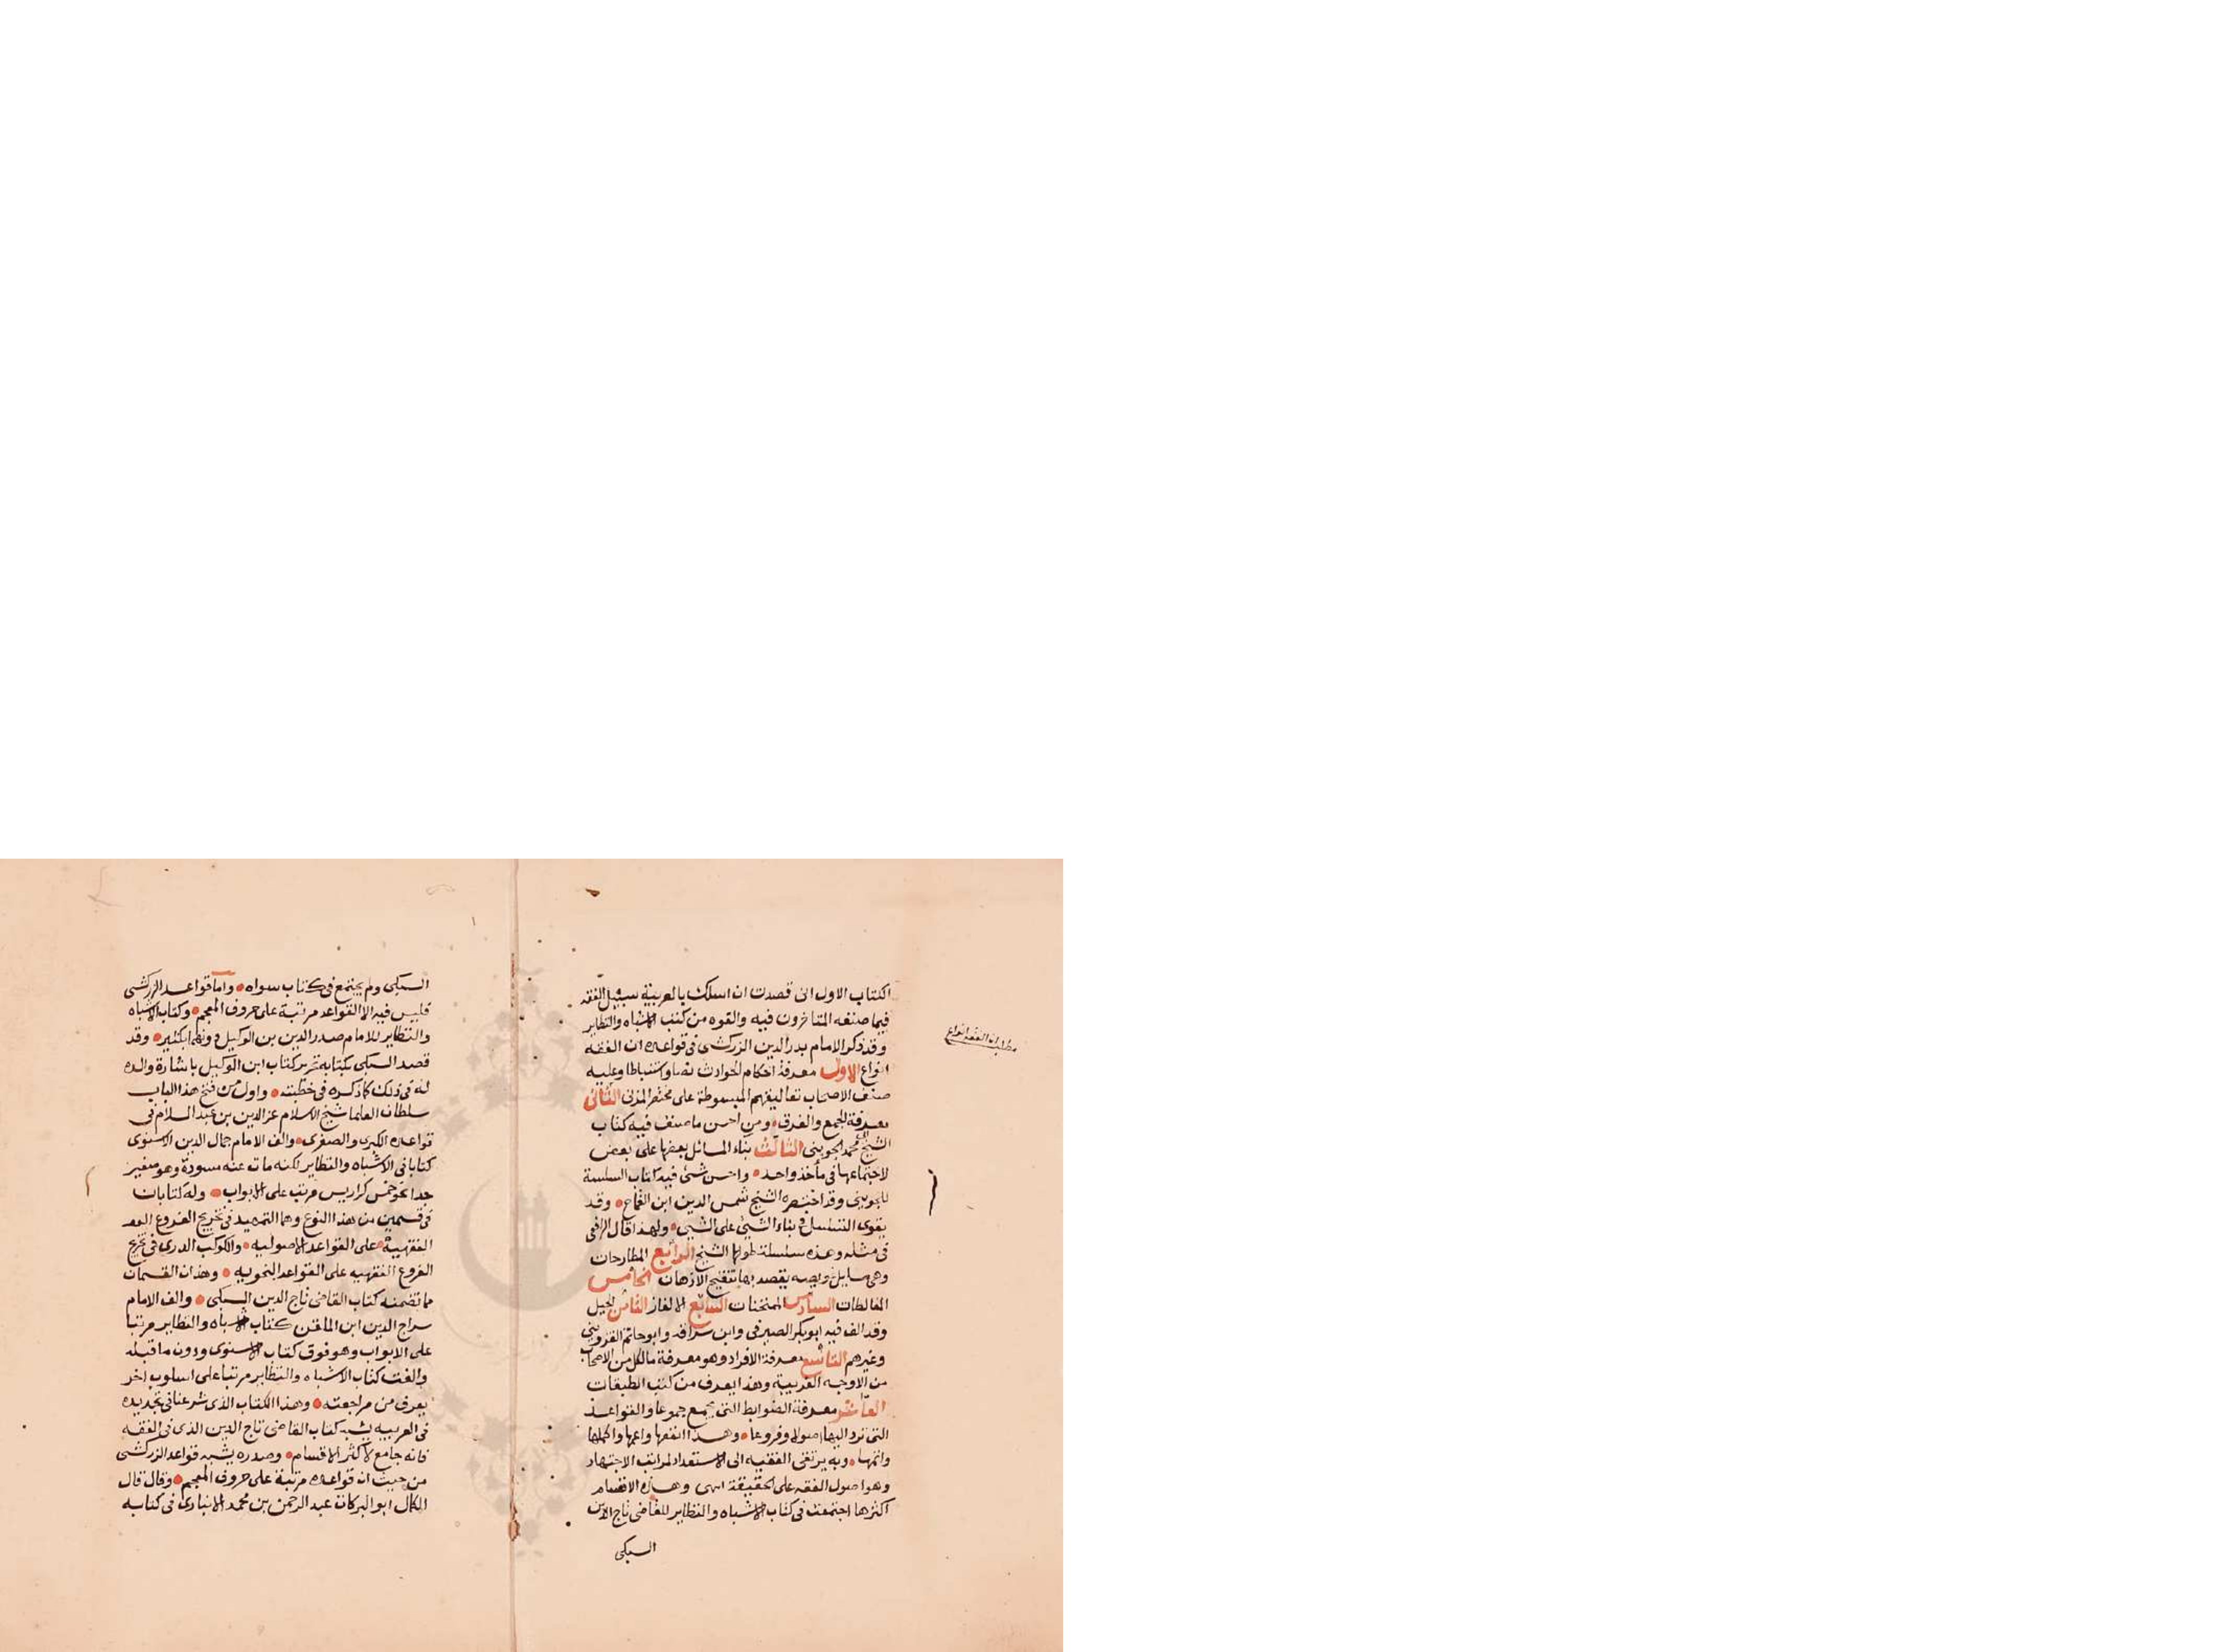 الكتاب الاول انى قصدت ان اسلك بالعربية سبيل الفقه
فيما صنفه المتاخرون فيه والفوه من كتب الاشباه والنظاير
وقد ذكر الامام بدر الدين الزركشى فى قواعده ان الفقه
انواع الاول معرفة احكام الحوادث نصا واستنباطا وعليه
صنف الاصحاب تعاليقهم المبسوطة على مختصر المزنى الثانى
معرفة الجمع والفرق ومن احسن ما صنف فيه كتاب
الشيخ محمد الجوينى الثالث بناء المسائل بعضها على بعض
لاجتماعها فى مأخذ واحد واحسن شئ فيه كتاب السلسة
للجوينى وقد اختصره الشيخ شمس الدين ابن القماح وقد
يقوى التسلسل فى بناء الشئ على الشئ ولهذا قال الرافعى
فى مثله وهذه سلسلة طولها الشيخ الرابع المطارحات
وهى مسايل عويصه يقصد بها تنقيح الاذهان الخامس
المغالطات السادس الممتحنات السابع الالغاز الثامن الحيل
وقد الف فيه ابوبكر الصيرفى وابن سراقه وابوحاتم القزوينى
وغيرهم التاسع معرفة الافراد وهو معرفة مالكل من الاصحاب
من الاوجه الغريبة وهذا يعرف من كتب الطبقات
العاشر معرفة الضوابط التى تجمع جموعا والقواعد
التى ترد اليها اصولا وفروعا وهذا انفعها واعمها واكملها
واتمها وبه يرتقى الفقيه الى الاستعداد لمراتب الاجتهاد
وهو اصول الفقه على الحقيقة انتهى وهذه الاقسام
اكثرها اجتمعت فى كتاب الاشباه والنظاير للقاضى تاج الدين
السبكى
مطلب ان الفقه انواع
السبكى ولم يجتمع فى كتاب سواه واما قواعد الزركشى
فليس فيه الا القواعد مرتبة على حروف المعجم وكتاب الاشباه
والنظاير للامام صدر الدين بن الوكيل دونهما بكثير وقد
قصد السبكى بكتابه تحرير كتاب ابن الوكيل باشارة والده
له فى ذلك كما ذكره فى خطبته واول من فتح هذا الباب
سلطان العلما شيخ الاسلام عز الدين بن عبد السلام فى
قواعده الكبرى والصغرى والف الامام جمال الدين الاسنوى
كتابا فى الاشباه والنظاير لكنه مات عنه مسودة وهو صغير
جدا نحو خمس كراريس مرتب على الابواب وله كتابان
فى قسمين من هذا النوع وهما التمهيد فى تخريج الفروع
الفقهية على القواعد الاصوليه والكوكب الدرى فى تخريج
الفروع الفقهيه على القواعد النحويه وهذان القسمان
مما تضمنه كتاب القاضى تاج الدين السبكى والف الامام
سراج الدين ابن الملقن كتاب الاشباه والنظاير مرتبا
على الابواب وهو فوق كتاب الاسنوى ودون ما قبله
والفت كتاب الاشباه والنظاير مرتبا على اسلوب اخر
يعرف من مراجعته وهذا الكتاب الذى شرعنا فى تجديده
فى العربيه يشبه كتاب القاضى تاج الدين الذى فى الفقه
فانه جامع لاكثر الاقسام وصدره يشبه قواعد الزركشى
من حيث ان قواعده مرتبة على حروف المعجم وقال قال
الكمال ابو البركات عبد الرحمن بن محمد الانبارى فى كتابه